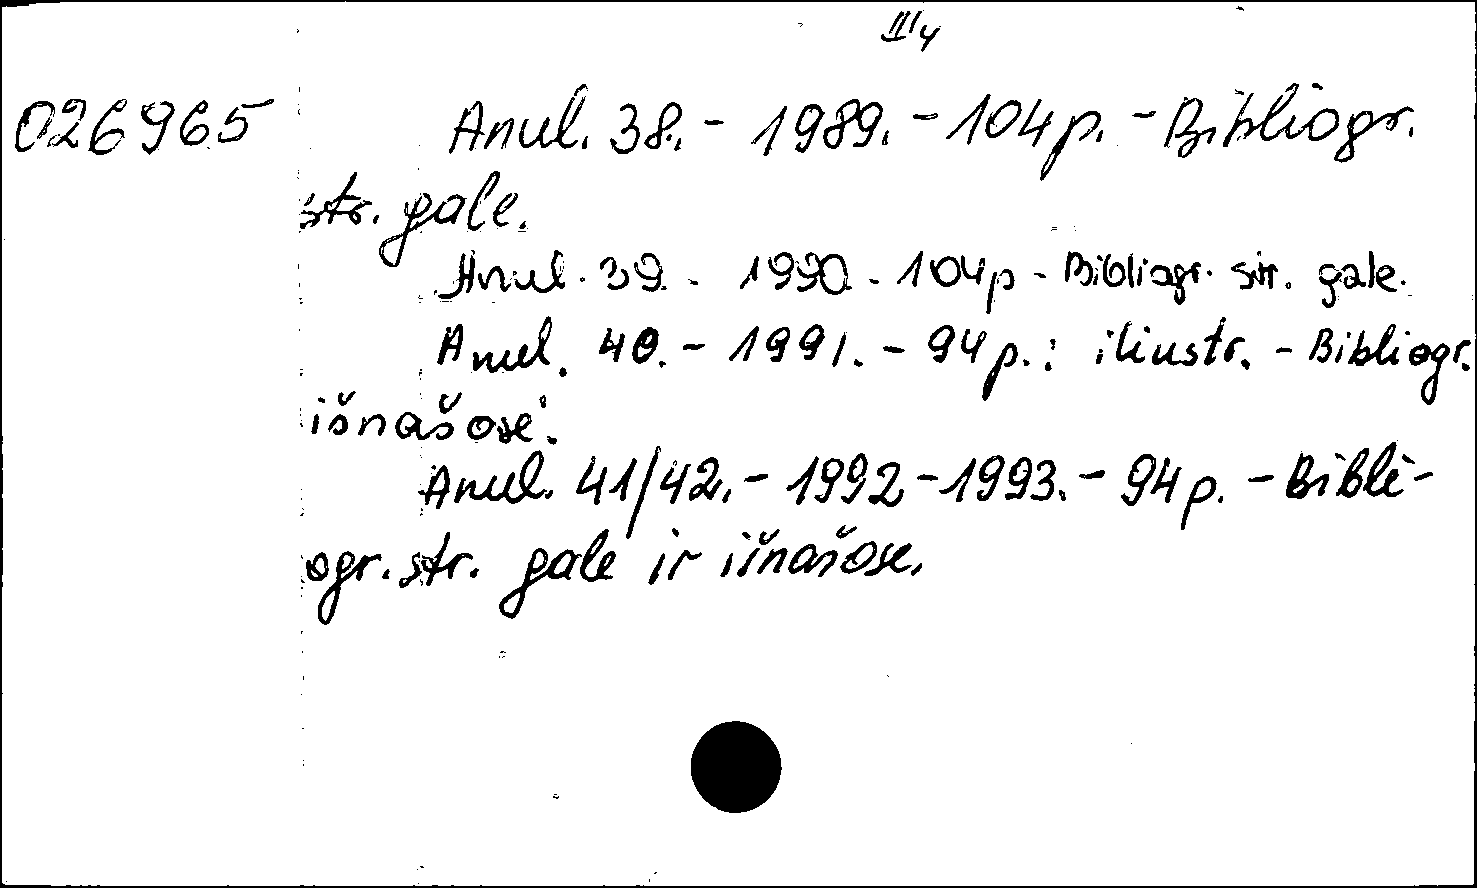 III/4
026965 Anul. 38. - 1989. - 104 p. - Bibliogr.
str. gale.
Anul. 39. - 1990. - 104 p - Bibliogr. str. gale.
Anul. 40. - 1991. - 94 p.: iliustr. - Bibliogr.
išnašose.
Anul. 41/42. - 1992-1993. - 94 p. - Bibli-
ogr. str. gale ir išnašose.